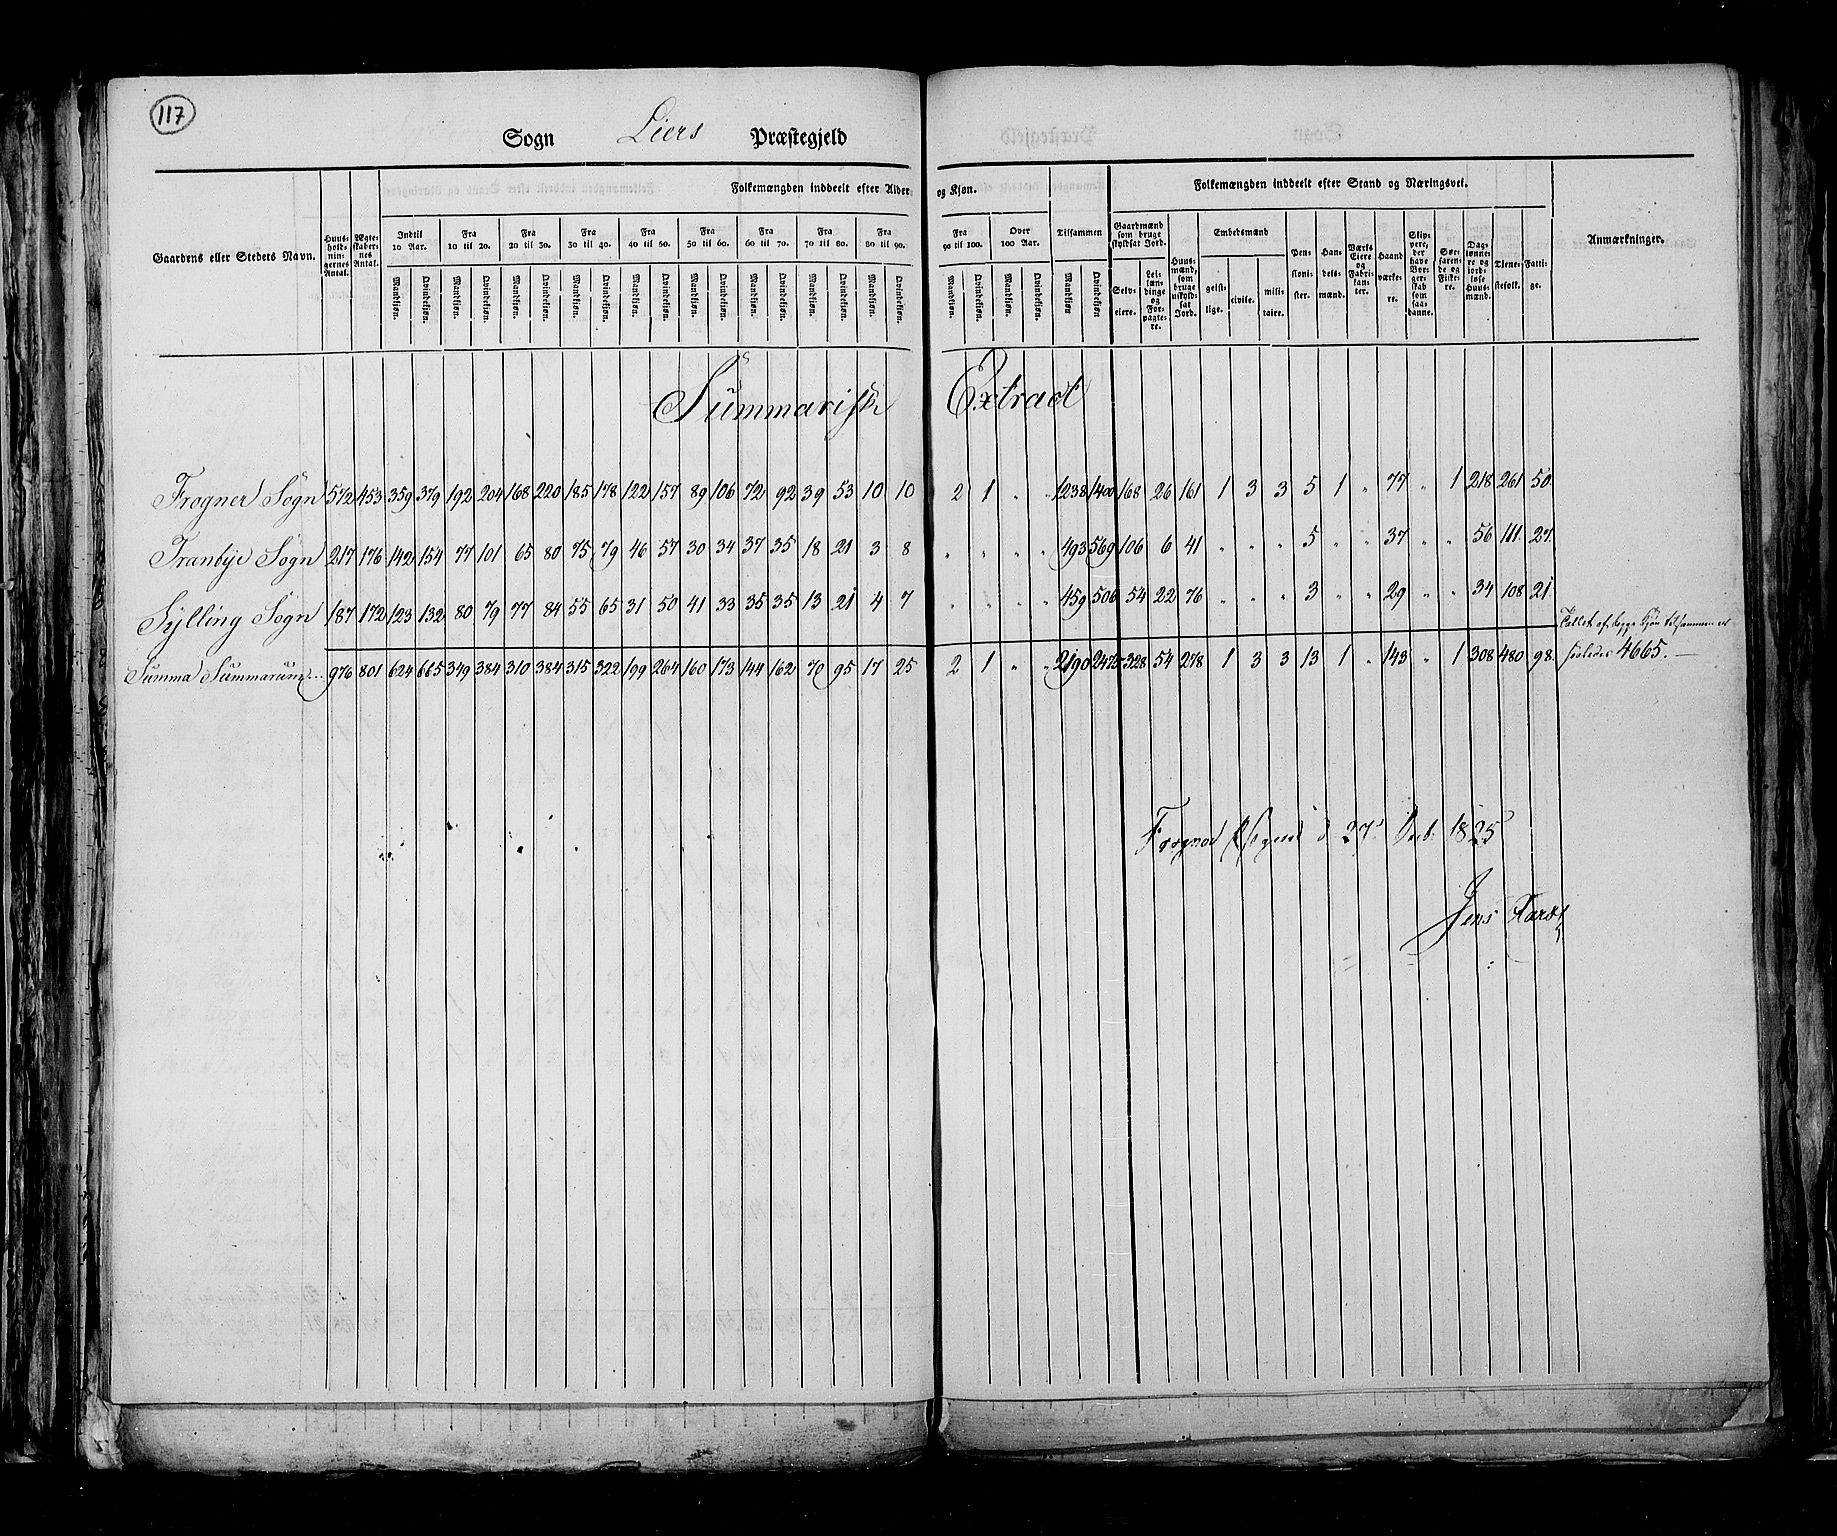 117
Sogn Liers Præstegjeld
Folkemængden inddeelt efter Alder og Kjøn. Folkemængden inddeelt efter Stand og Næringsvei.
Gaardens eller Steders Navn. Huusholdningernes Antal. Ægteskabernes Antal. Indtil 10 Aar. Fra 10 til 20. Fra 20 til 30. Fra 30 til 40. Fra 40 til 50. Fra 50 til 60. Fra 60 til 70. Fra 70 til 80. Fra 80 til 90. Fra 90 til 100. Over 100 Aar. Tilsammen Gaardmænd som bruge skyldsat Jord. Huusmænd, som bruge uskyldsat Jord. Embedsmænd Pensionister. Handelsmænd. Værks Eiere og Fabrikanter. Haandværkere. Skippere, der have Borgerskab som saadanne. Søefarende og Fiskere. Daglønnere og jordløse Huusmænd. Tjenestefolk. Fattige. Anmærkninger.
Mandkjøn. Qvindekjøn. Mandkjøn. Qvindekjøn. Mandkjøn. Qvindekjøn. Mandkjøn. Qvindekjøn. Mandkjøn. Qvindekjøn. Mandkjøn. Qvindekjøn. Mandkjøn. Qvindekjøn. Mandkjøn. Qvindekjøn. Mandkjøn. Qvindekjøn. Mandkjøn. Qvindekjøn. Mandkjøn. Qvindekjøn. Mandkjøn. Qvindekjøn Selveiere. Leilændinge og Forpagtere. geistlige. civile. militaire.
Summarisk Extract
Frogner Sogn 572 453 359 379 192 204 168 220 185 178 122 157 89 106 72 92 39 53 10 10 2 1 " " 1238 1400 168 26 161 1 3 3 5 1 " 77 " 1 218 261 50
Tranbye Sogn 217 176 142 154 77 101 65 80 75 79 46 57 30 34 37 35 18 21 3 8 " " " " 493 569 106 6 41 " " " 5 " " 37 " " 56 111 27
Sylling Sogn 187 172 123 132 80 79 77 84 55 65 31 50 41 33 35 35 13 21 4 7 " " " " 459 506 54 22 76 " " " 3 " " 29 " " 34 108 21
Tallet af begge Kjøn tilsammen er
Summa Summarum 976 801 624 665 349 384 310 384 315 322 199 264 160 173 144 162 70 95 17 25 2 1 " " 2190 2475 328 54 278 1 3 3 13 1 " 143 " 1 308 480 98 saaledes 4665.
Frogner 27 1825
Jens